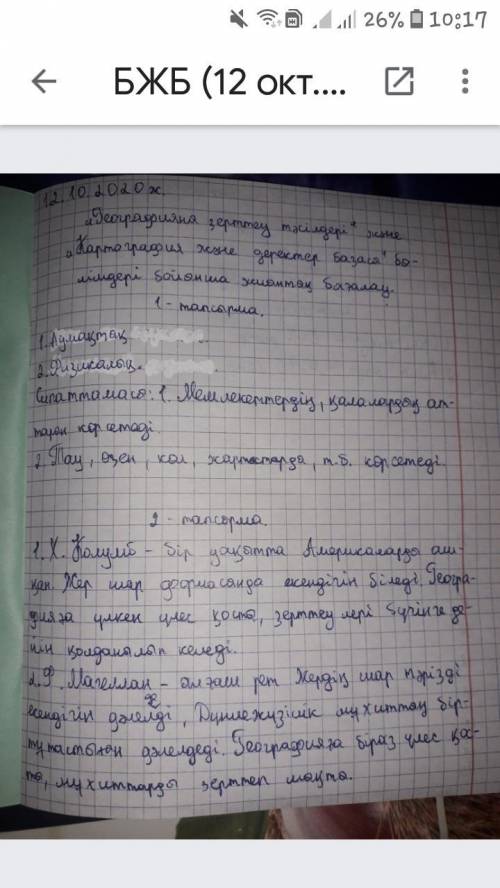 26% 10:17
БЖБ (12 окт....
12.10.2020ж.
„Географияна зерттеу тәсілдері" және
„Картография және деректер базасы" бө-
лімдері бойонша жионтық бағалау.
1 - тапсырма.
1. Аумақтақ
2. Физикалық.
Сипаттамасы: 1. Мемлекеттердің, қалалардың ап-
көрсетеді.
2. Тау, өзен, көл, т.б. көрсетеді.
2 - тапсырма.
1. Х. Колумб - бір уақытта Америкаларды аш-
қан. Жер шар формасында екендігін біледі. Геогра-
фияға үлкен үлес қосты, зерттеулері бүгінге де-
йін қолданылып келеді.
2. Ф. Магеллан - алғаш рет Жердің шар тәрізді
екендігін дәлелді, Дүниежүзілік мұхиттың бір-
тұтастығын дәлелдеді. Географияға біраз үлес қос-
ты, мұхиттарды зерттеп шықты.